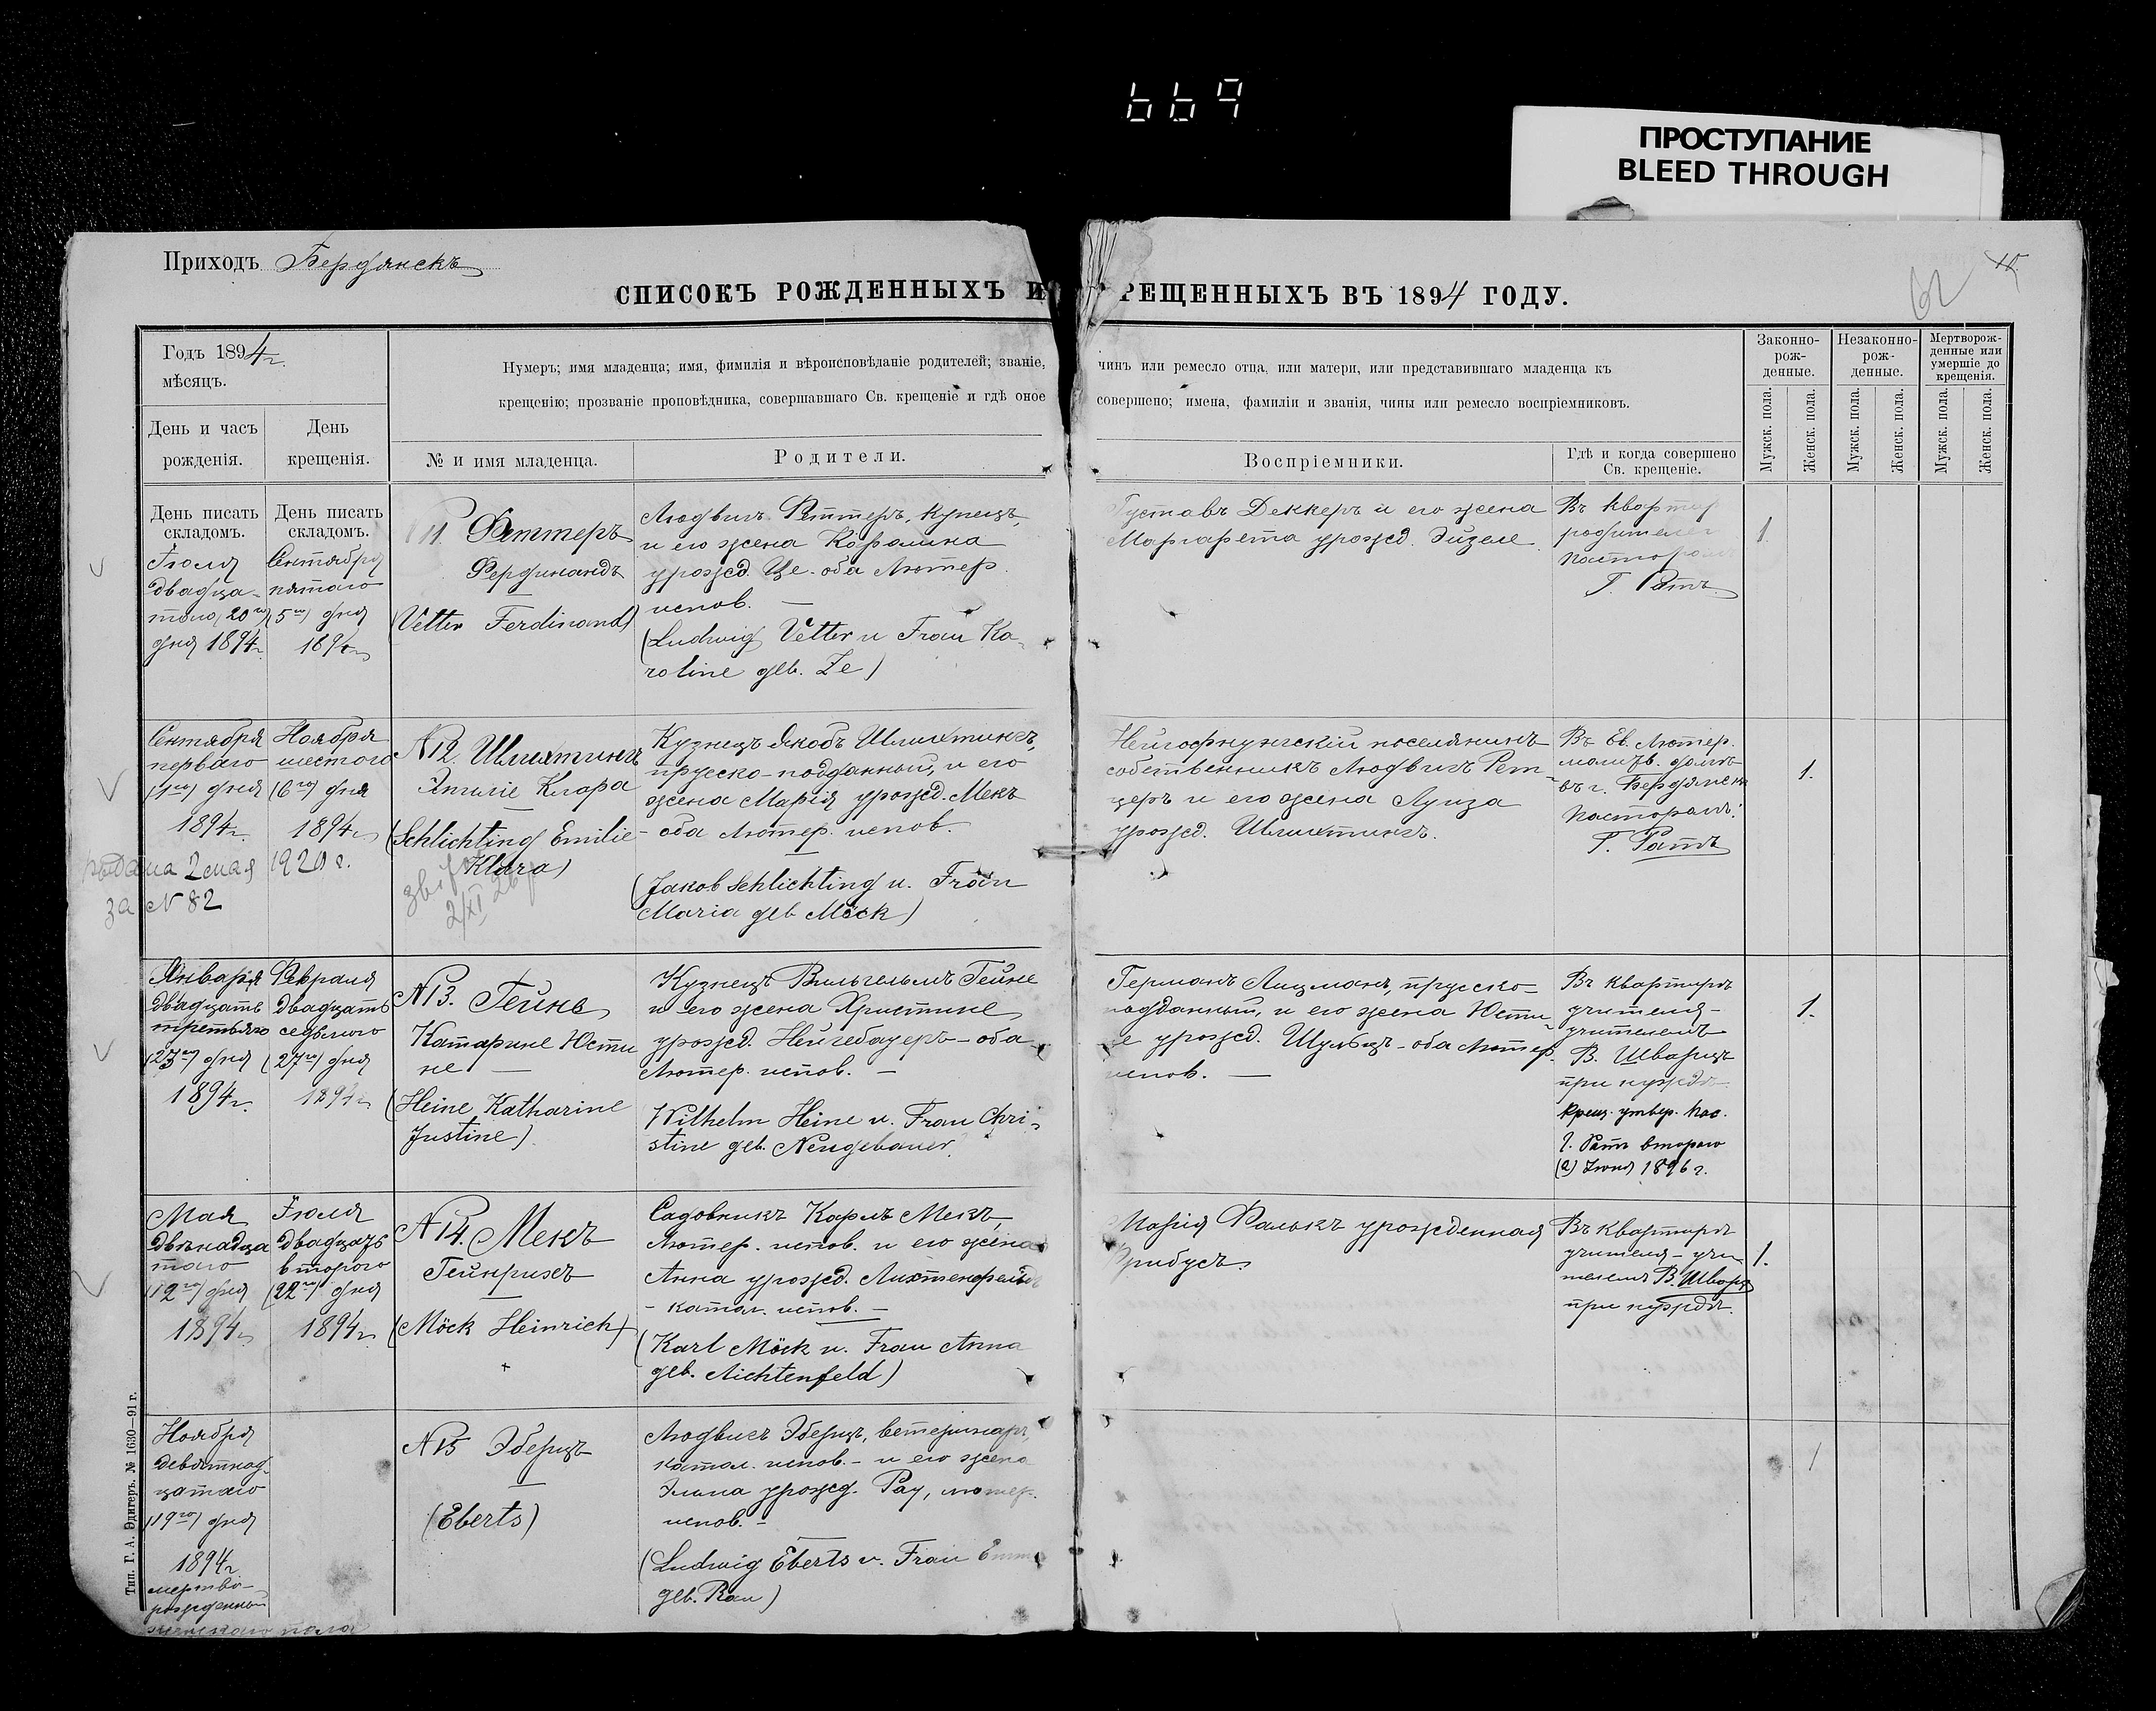 669
ПРОСТУПАНИЕ
BLEED THROUGH
Приходъ Бердянскъ
СПИСОКЪ РОЖДЕННЫХЪ И РЕЩЕННЫХЪ ВЪ 1894 ГОДУ.
62
Годъ 1894 г.
мѣсяцъ.
День и часъ
рожденія.
День
крещенія.
Нумеръ; имя младенца; имя, фимилія и вѣроисповѣданіе родителей; званіе, чинъ или ремесло отца, или матери, или представившаго младенца къ
крещенію; прозваніе проповѣдника, совершавшаго Св. крещеніе и гдѣ оное совершено; имена, фамиліи и званія, чины или ремесло воспріемниковъ.
№ и имя младенца.
Родители.
Воспріемники.
Гдѣ и когда совершено
Св. крещеніе.
Законно-
рож-
денные.
Незаконно-
рож-
денные.
Мертворож-
денные или
умершіе до
крещенія.
Мужск. пола.
Женск. пола.
Мужск. пола.
Женск. пола.
Мужск. пола.
Женск. пола.
День писать
складомъ.
Іюля
двадца-
таго (20го)
дня 1894 г.
День писать
складомъ.
Сентября
пятаго
(5го) дня
1894 г.
11 Феттеръ
Фердинандъ
(Vetter Ferdinand)
Людвигъ Феттеръ, купецъ,
и его жена Каролина
урожд. Це - оба Лютер.
испов. —
(Ludwig Vetter u Frau Ka-
roline geb. Ze)
Густавъ Деккеръ и его жена
Маргарета урожд. Эйзеле
Въ квартир
родителей
пасторомъ
Г. Ратъ
1.
Сентября
перваго
(1го) дня
1894 г.
Ноября
шестого
(6го) дня
1894 г.
2 мая 1920 г.
за N 82
N12. Шлихтингъ
Эмилie Клара
(Schlichting Emilie
Klara)
2/XI
Кузнецъ Якобъ Шлихтингъ,
прусско-подданный, и его
жена Марія урожд. Мекъ
- оба Лютер. испов.
(Jakob Schlichting u. Frau
Maria geb Möck)
Нейгофнунгскій поселянинъ
собственникъ Людвигъ Рет-
церъ и его жена Луиза
урожд. Шлихтингъ.
Въ Ев. Лютер.
молитв. домѣ
въ г. Бердянскѣ
Пасторомъ:
Г. Ратъ
1.
Января
двадцать
третьяго
(23го) дня
1894 г.
Февраля
двадцать
седьмого
(27го) дня
1894 г.
N13. Гейнъ
Катарине Юсти
не —
(Heine Katharine
Justine)
Кузнецъ Вильгельмъ Гейне
и его жена Христине
урожд. Нейгебауеръ - оба
Лютер. испов. —
Wilhelm Heine u. Frau Chri-
stine geb. Neugebauer.
Германъ Лицманъ, прусско-
подданный, и его жена Юсти-
не урожд. Шульцъ - оба Лютер.
испов. —
Въ квартирѣ
учителя -
учителемъ
В. Шварцъ
при нуждѣ
Крещ. утвер. пас.
Г. Ратъ второго
(2) Іюня 1896 г.
1.
Мая
двѣнадца
таго
(12го) дня
1894 г.
Іюля
двадцать
второго
(22го) дня
1894 г.
N14. Мекъ
Гейнрихъ
(Möck Heinrich)
+
Садовникъ Карлъ Мекъ,
Лютер. испов. и его жена
Анна урожд. Лихтенфельдъ
- катол. испов. —
(Karl Möck u. Frau Anna
geb. Lichtenfeld)
Марія Фалькъ урожденная
Прибусъ.
Въ квартирѣ
учителя - учи-
телемъ В. Шварцъ
при нуждѣ.
1.
Ноября
девятнад-
цатаго
(19го) дня
1894 г.
мертво-
рожденный
женскаго пола
N15 Эберцъ
(Eberts)
Людвигъ Эберцъ, ветеринаръ,
катол. испов. - и его жена
Эмма урожд. Рау, лютер.
испов. -
(Ludwig Eberts u. Frau Emma
geb. Rau)
1
Тип. Г. А. Эдигеръ. № 1630—91 г.